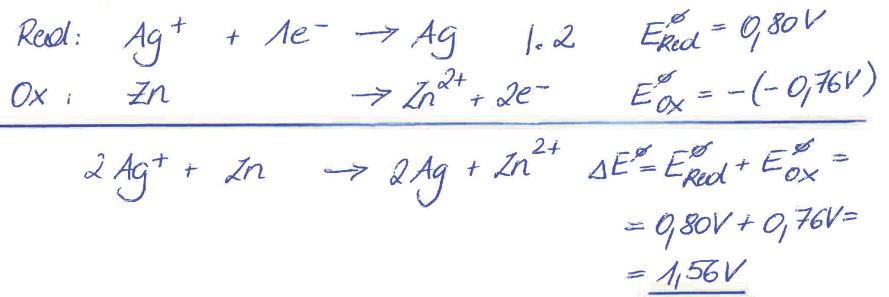 Red: Ag⁺ + 1e⁻ → Ag |·2 E°Red = 0,80V
Ox: Zn → Zn²⁺ + 2e⁻ E°Ox = -(-0,76V)
2Ag⁺ + Zn → 2Ag + Zn²⁺ ΔE° = E°Red + E°Ox =
= 0,80V + 0,76V =
= 1,56V